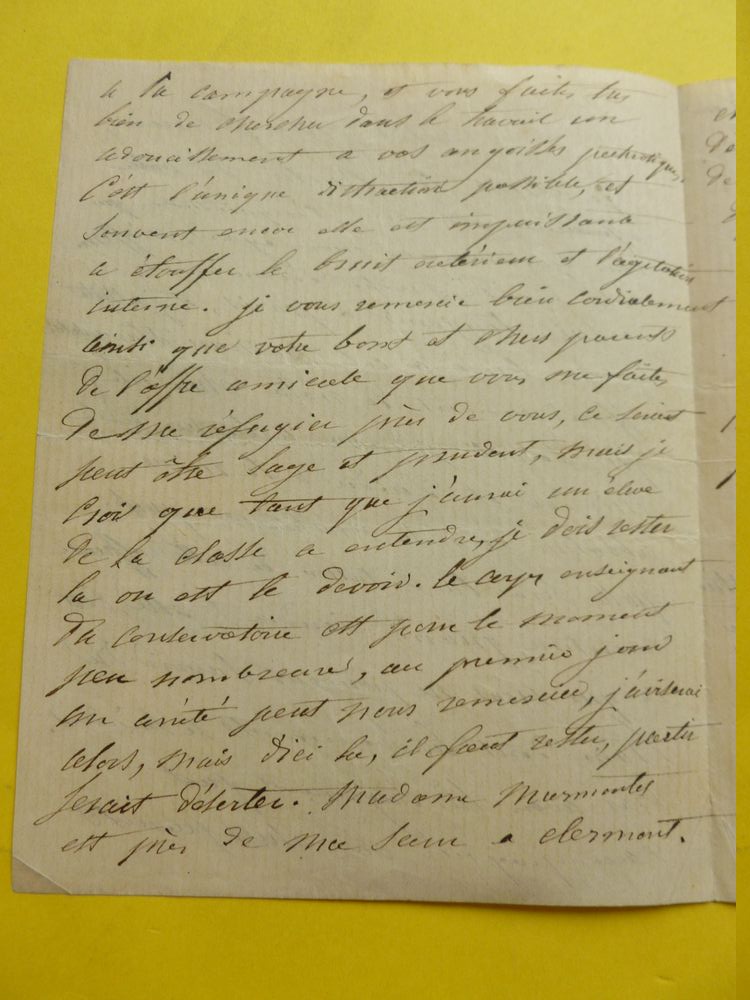 a la campagne, et vous faites très
bien de chercher dans le travail un
adoucissement a vos angoisses patriotiques,
C'est l'unique distraction possible, et
souvent encore elle est impuissante
a étouffer le bruit extérieur et l'agitation
interne. je vous remercie bien cordialement
ainsi que votre bons et chers parents
de l'offre amicale que vous me faites
de me réfugier près de vous, ce serait
peut être sage et prudent, mais je
crois que tant que j'aurai un élève
de la classe a entendre, je dois rester
la ou est le devoir. le corps enseignant
du conservatoire est pour le moment
peu nombreux, au premier jour
un arrêté peut nous remercier, j'aviserai
alors, mais d'ici la, il faut rester, partir
serait déserter. Madame Marmontel
est près de ma sœur a clermont.